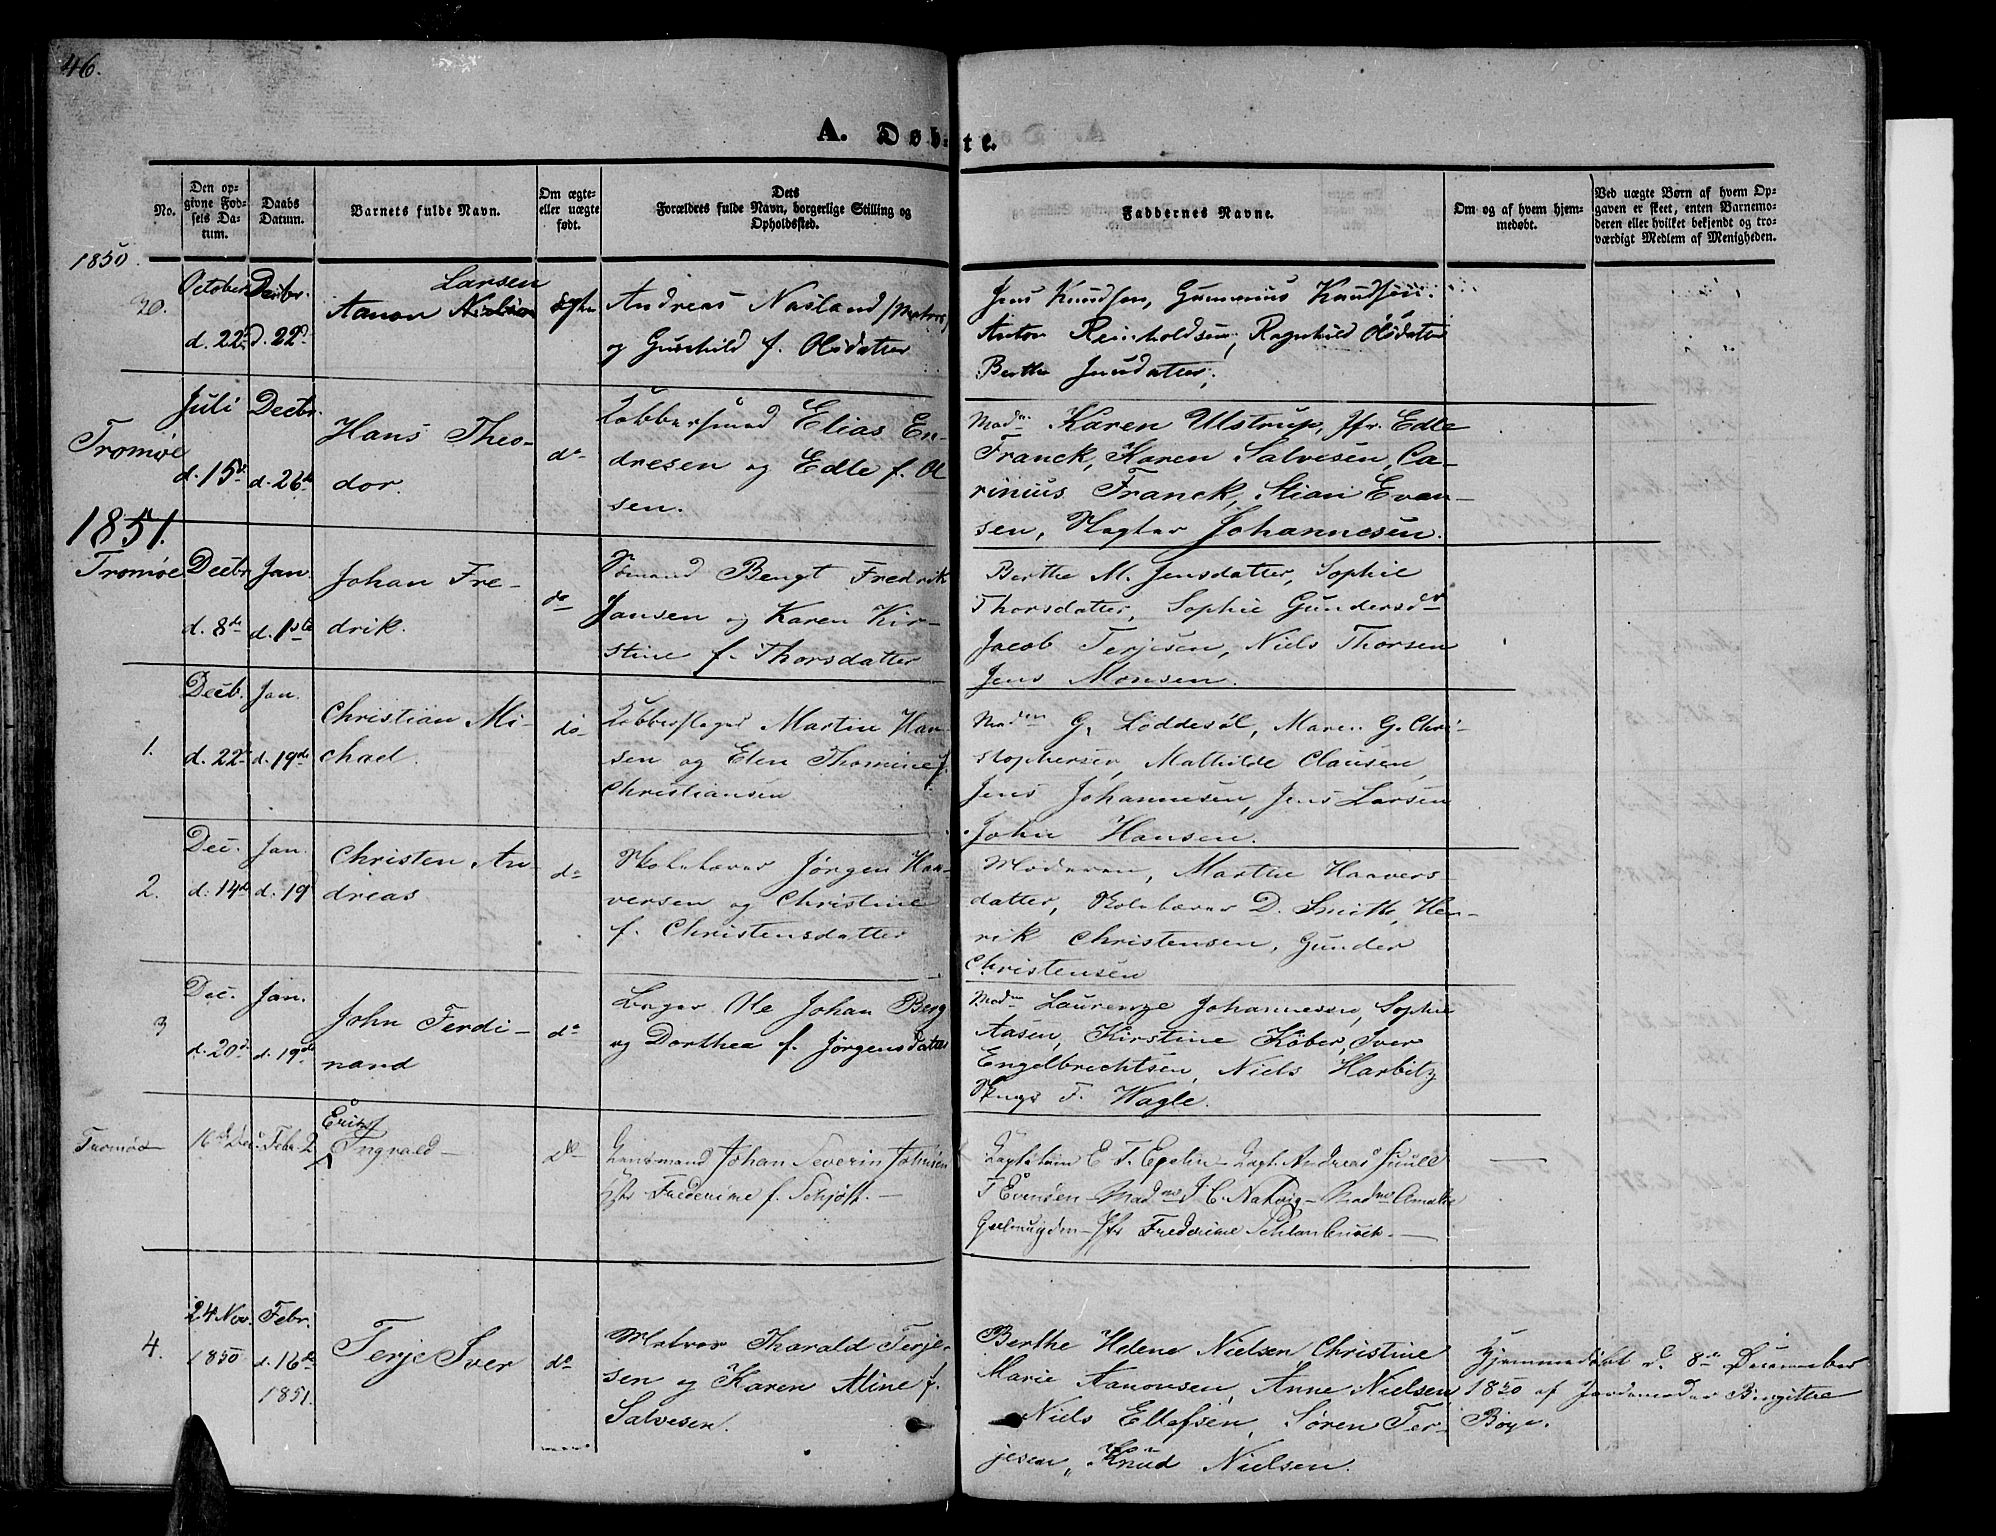 46.
A. Døbte.
No.
Den opgivne Fødsels Datum.
Daabs Datum.
Barnets fulde Navn.
Om ægte- eller uægte født.
Dets Forældres fulde Navn, borgerlige Stilling og Opholdssted.
Faddernes Navne.
Om og af hvem hjemmedøbt.
Ved uægte Børn af hvem Opgaven er skeet, enten Barnemoderen eller hvilket bekjendt og troværdigt Medlem af Menigheden.
1850
October d. 22de
Decbr. d. 22de
Aanon Larsen
Andreas Nasland /Matros/
og Gunhild f. Olsdatter
Jens Knudsen, Gunnerius Knudsen.
Anton Reinholdsen, Ragnhild Olsdatter
Berthe Jensdatter.
Tromøe
Juli d. 15de
Decbr. d. 26de
Hans Theodor.
do
Kobbersmed Elias En-
dresen og Edle f. Ol
sen.
Madm. Karen Ulstrup, Jfr. Edle
Franck, Karen Salvesen, Ca-
rinius Franck, Stian Even-
sen, Johannesen.
1851.
Tromøe
Decbr d. 8de
Jan. d. 1ste
Johan Fredrik.
do
Sømand Bengt Fredrik
Jansen og Karen Kir-
stine f. Thorsdatter
Berthe M. Jensdatter, Sophie
Thorsdatter, Sophie Gundersdr
Jacob Terjesen, Niels Thorsen
Jens Monsen.
1.
Decb. d. 22de
Jan. d. 19de
Christian Michael.
do
Kobberslager Martin Han-
sen og Elen Thomine f.
Christiansen
Madm G. Løddesøl, Maren G. Chri-
stophersen, Mathilde Clausen,
Jens Johannesen, Jens Larsen
John Hansen.
2.
Dec. d. 14de
Jan. d. 19
Christen Andreas
do
Skolelærer Jørgen Haa-
versen og Christine
f. Christensdatter
Moderen, Marthe Haavers-
datter, Skolelærer D. Smith, Hen-
rik Christensen, Gunder
Christensen
3
Dec. d. 20de
Jan. d. 19de
John Ferdinand
do
Ole Johan Berg
og Dorthea f. Jørgensdatter
Madm Laurenze Johannesen, Sophie
Aasen, Kirstine Køber, Sver
Engelbrechtsen, Niels Harbitz
F. Wagle.
Tromøe
16de Dec.
Febr. 2
Erik
Ingvald
do
Lensmand Johan Severin Johnsen
Frederikke f. Schjøtt.
E. T. Andreas Juull
T Evensen Madme J. C. Natvig Madme Amalie
Jfr Frederikke Schlanbusch.
4.
24 Nov. 1850
Febr. d. 16de 1851.
Terje Sver
do
Matros Tharald Terje-
sen og Karen Aline f.
Salvesen.
Berthe Helene Nielsen Christine
Marie Aanonsen, Anne Nielsen
Niels Ellefsen, Søren Ter-
jesen, Knud Nielsen.
Hjemmedøbt d. 8de December
1850 af Jordemoder Birgitthe
Boye.